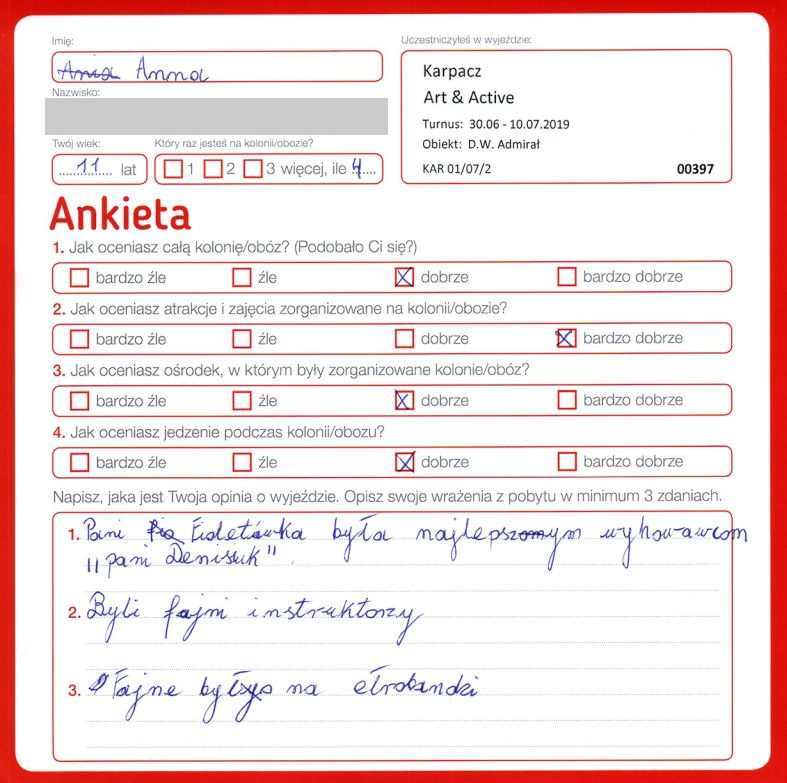 Imię:
Ania Anna
Nazwisko:
Uczestniczyłeś w wyjeździe:
Karpacz
Art & Active
Turnus: 30.06 - 10.07.2019
Obiekt: D.W. Admirał
KAR 01/07/2 00397
Twój wiek:
11 lat
Który raz jesteś na kolonii/obozie?
1 2 3 więcej, ile 4
Ankieta
1. Jak oceniasz całą kolonię/obóz? (Podobało Ci się?)
bardzo źle źle dobrze bardzo dobrze
2. Jak oceniasz atrakcje i zajęcia zorganizowane na kolonii/obozie?
bardzo źle źle dobrze bardzo dobrze
3. Jak oceniasz ośrodek, w którym były zorganizowane kolonie/obóz?
bardzo źle źle dobrze bardzo dobrze
4. Jak oceniasz jedzenie podczas kolonii/obozu?
bardzo źle źle dobrze bardzo dobrze
Napisz, jaka jest Twoja opinia o wyjeździe. Opisz swoje wrażenia z pobytu w minimum 3 zdaniach.
1. Pani była najlepszym
"pani Denisuk".
2. Byli fajni instruktorzy
3. Fajne na